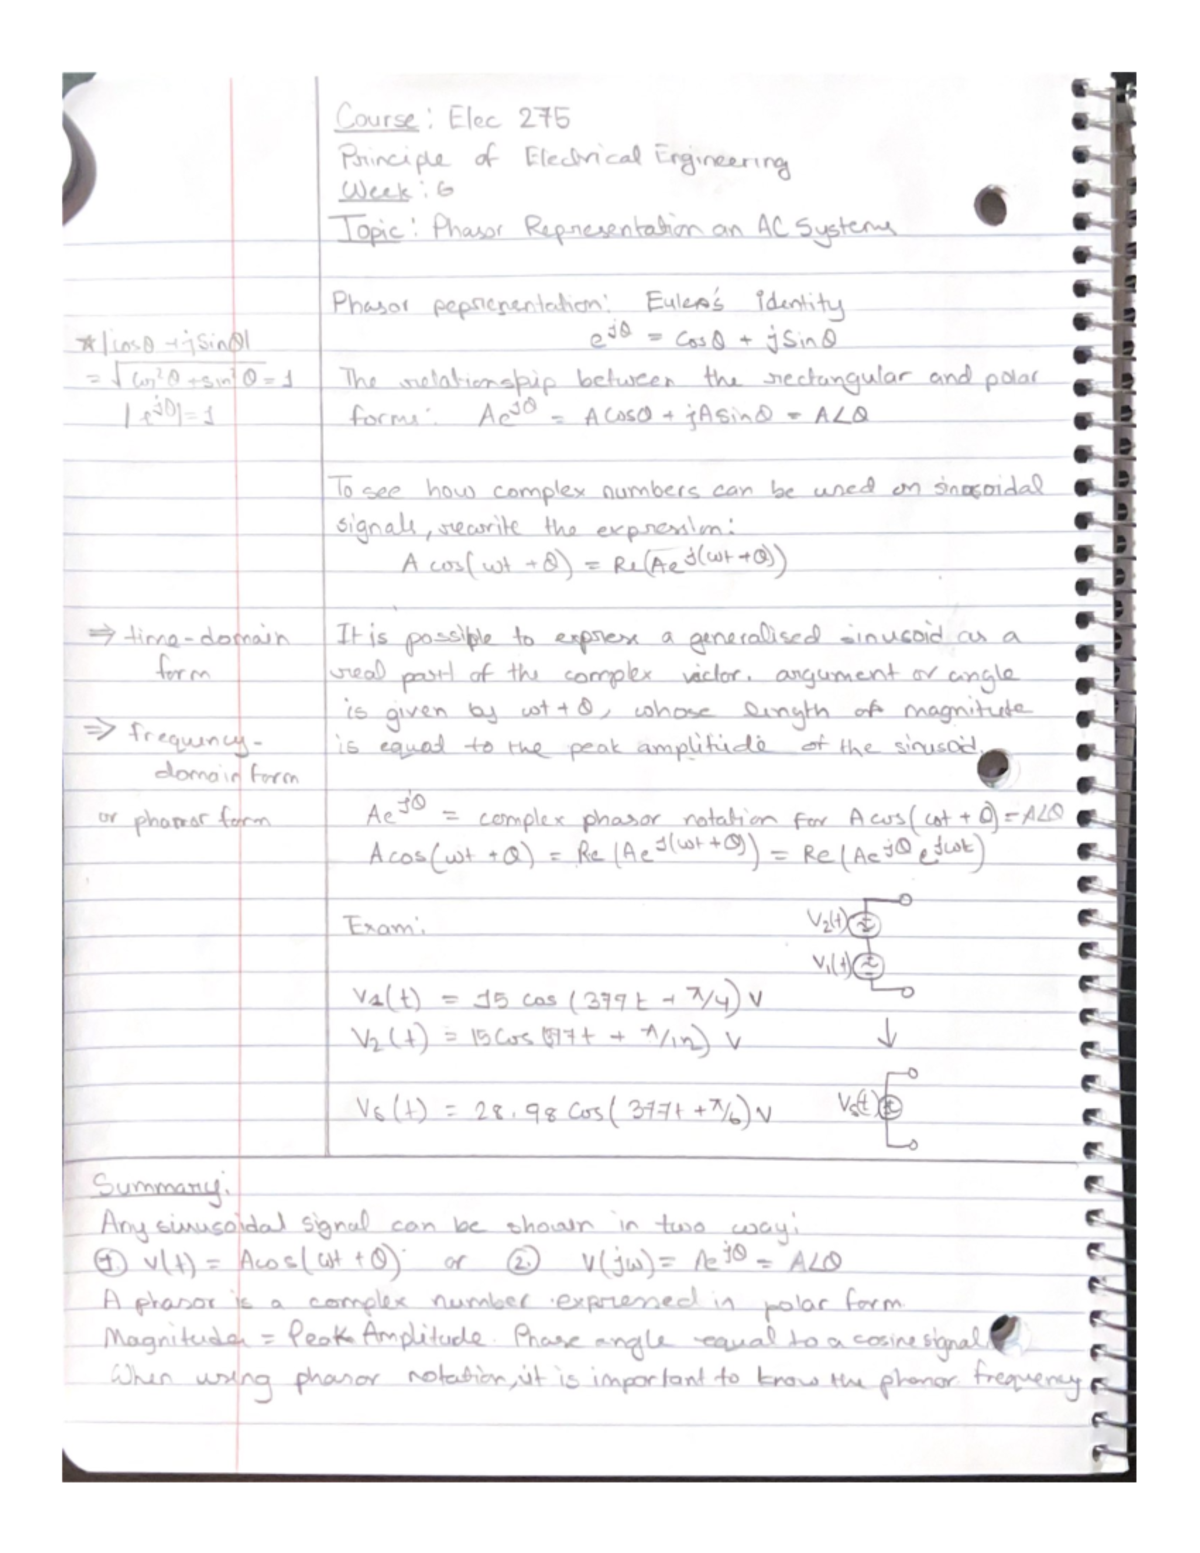 Course: Elec 275
Principle of Electrical Engineering
Week: 6
Topic: Phasor Representation on AC Systems
Phasor pepresentation: Euler's identity
e^jθ = Cosθ + jSinθ
★ |cosθ + jSinθ|
= √cos²θ + sin²θ = 1
|e^jθ| = 1
The relationship between the rectangular and polar
forms: Ae^jθ = Acosθ + jAsinθ = A∠θ
To see how complex numbers can be used on sinosoidal
signals, rewrite the expression:
A cos(ωt + θ) = Re(Ae^j(ωt+θ))
⇒ time-domain
form
⇒ frequency-
domain form
or phasor form
It is possible to express a generalised sinusoid as a
real part of the complex vector. argument or angle
is given by ωt + θ, whose length of magnitude
is equal to the peak amplitude of the sinusoid.
Ae^jθ = complex phasor notation for Acos(ωt + θ) = A∠θ
Acos(ωt + θ) = Re(Ae^j(ωt+θ)) = Re(Ae^jθ e^jωt)
Exam:
V₂(t)
V₁(t)
V₁(t) = 15 cos(377t + π/4) V
V₂(t) = 15Cos(377t + π/12) V
Vs(t) = 28.98 Cos(377t + π/6) V
Vs(t)
Summary:
Any sinusoidal signal can be shown in two way:
① v(t) = Acos(ωt + θ) or ② V(jω) = Ae^jθ = A∠θ
A phasor is a complex number expressed in polar form.
Magnitude = Peak Amplitude. Phase angle equal to a cosine signal.
When using phasor notation, it is important to know the phasor frequency